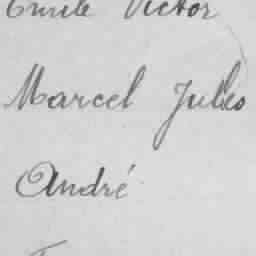 Emile Victor
Marcel Jules
André